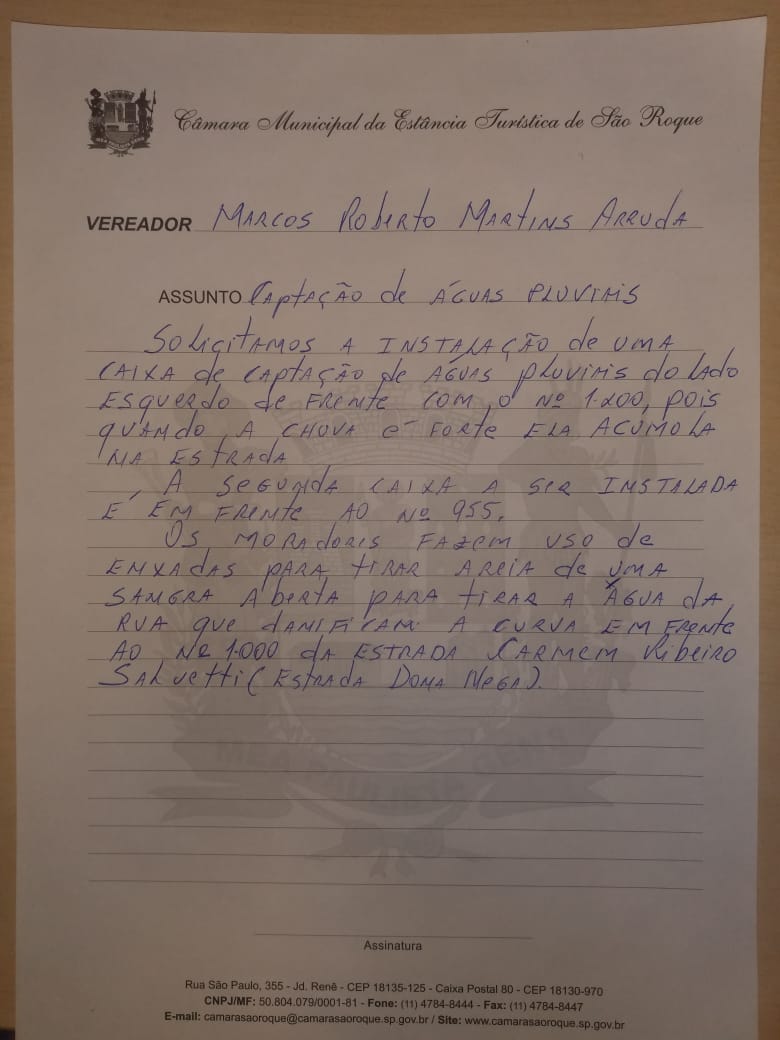 Câmara Municipal da Estância Turística de São Roque
VEREADOR MARCOS ROBERTO MARTINS ARRUDA
ASSUNTO CAPTAÇÃO de ÁGUAS PLUVIAIS
SOLICITAMOS A INSTALAÇÃO de UMA
CAIXA de CAPTAÇÃO de ÁGUAS PLUVIAIS do LADO
ESQUERDO de FRENTE COM O Nº 1.200, POIS
QUANDO A CHUVA É FORTE ELA ACUMOLA
NA ESTRADA
A SEGUNDA CAIXA A SER INSTALADA
É EM FRENTE AO Nº 955.
OS MORADORIS FAZEM USO de
ENXADAS PARA TIRAR AREIA de UMA
SANGRA ABERTA PARA TIRAR A ÁGUA DA
RUA QUE DANIFICAM A CURVA EM FRENTE
AO Nº 1.000 DA ESTRADA CARMEM RIBEIRO
SALVETTI (ESTRADA DONA NEGA).
MEA PAULISTA GENS
Assinatura
Rua São Paulo, 355 - Jd. Renê - CEP 18135-125 - Caixa Postal 80 - CEP 18130-970
CNPJ/MF: 50.804.079/0001-81 - Fone: (11) 4784-8444 - Fax: (11) 4784-8447
E-mail: camarasaoroque@camarasaoroque.sp.gov.br / Site: www.camarasaoroque.sp.gov.br